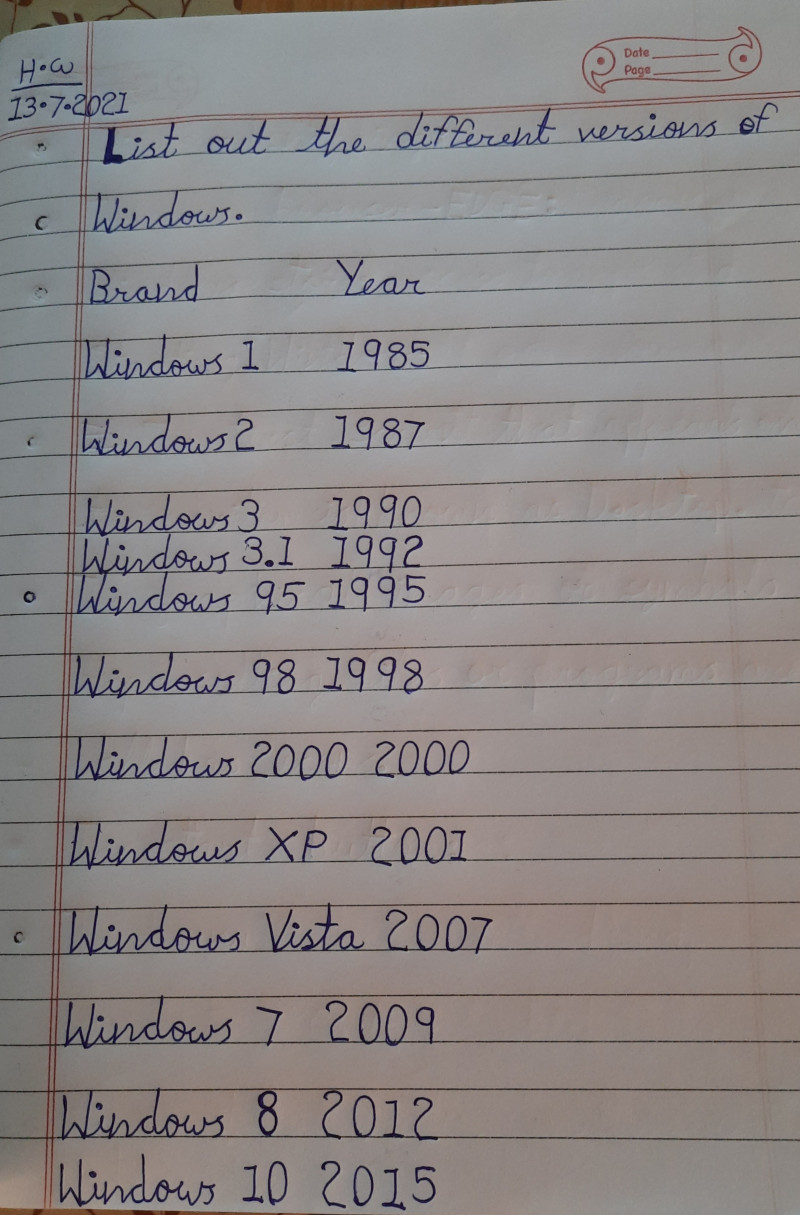 H.W
13.7.2021
Date
Page
List out the different versions of
Windows.
Brand Year
Windows 1 1985
Windows 2 1987
Windows 3 1990
Windows 3.1 1992
Windows 95 1995
Windows 98 1998
Windows 2000 2000
Windows XP 2001
Windows Vista 2007
Windows 7 2009
Windows 8 2012
Windows 10 2015